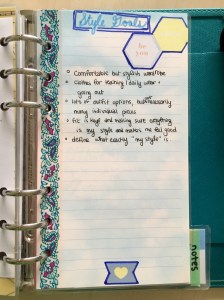 Style Goals
○ Comfortable but stylish wardrobe
○ clothes for teaching / daily wear +
going out
○ lots of outfit options, but not necessarily
many individual pieces
○ fit is key! and making sure everything
is my style and makes me feel good
○ define what exactly "my style" is
notes